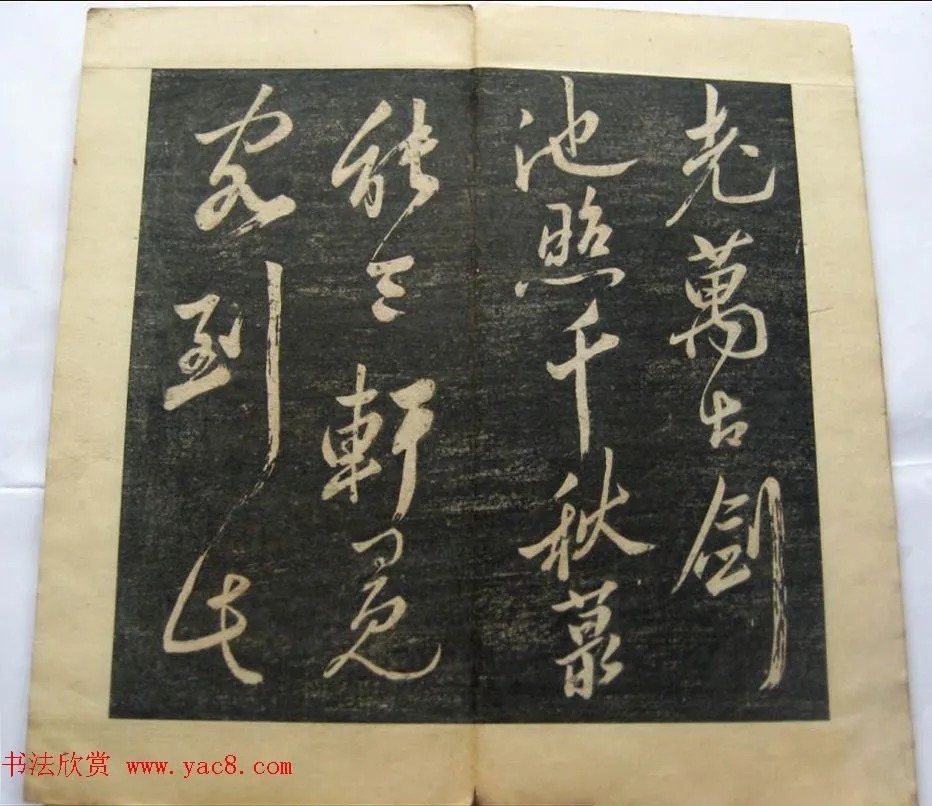 老萬古劍
池照千秋最
能軒冕
客到此
书法欣赏 www.yac8.com